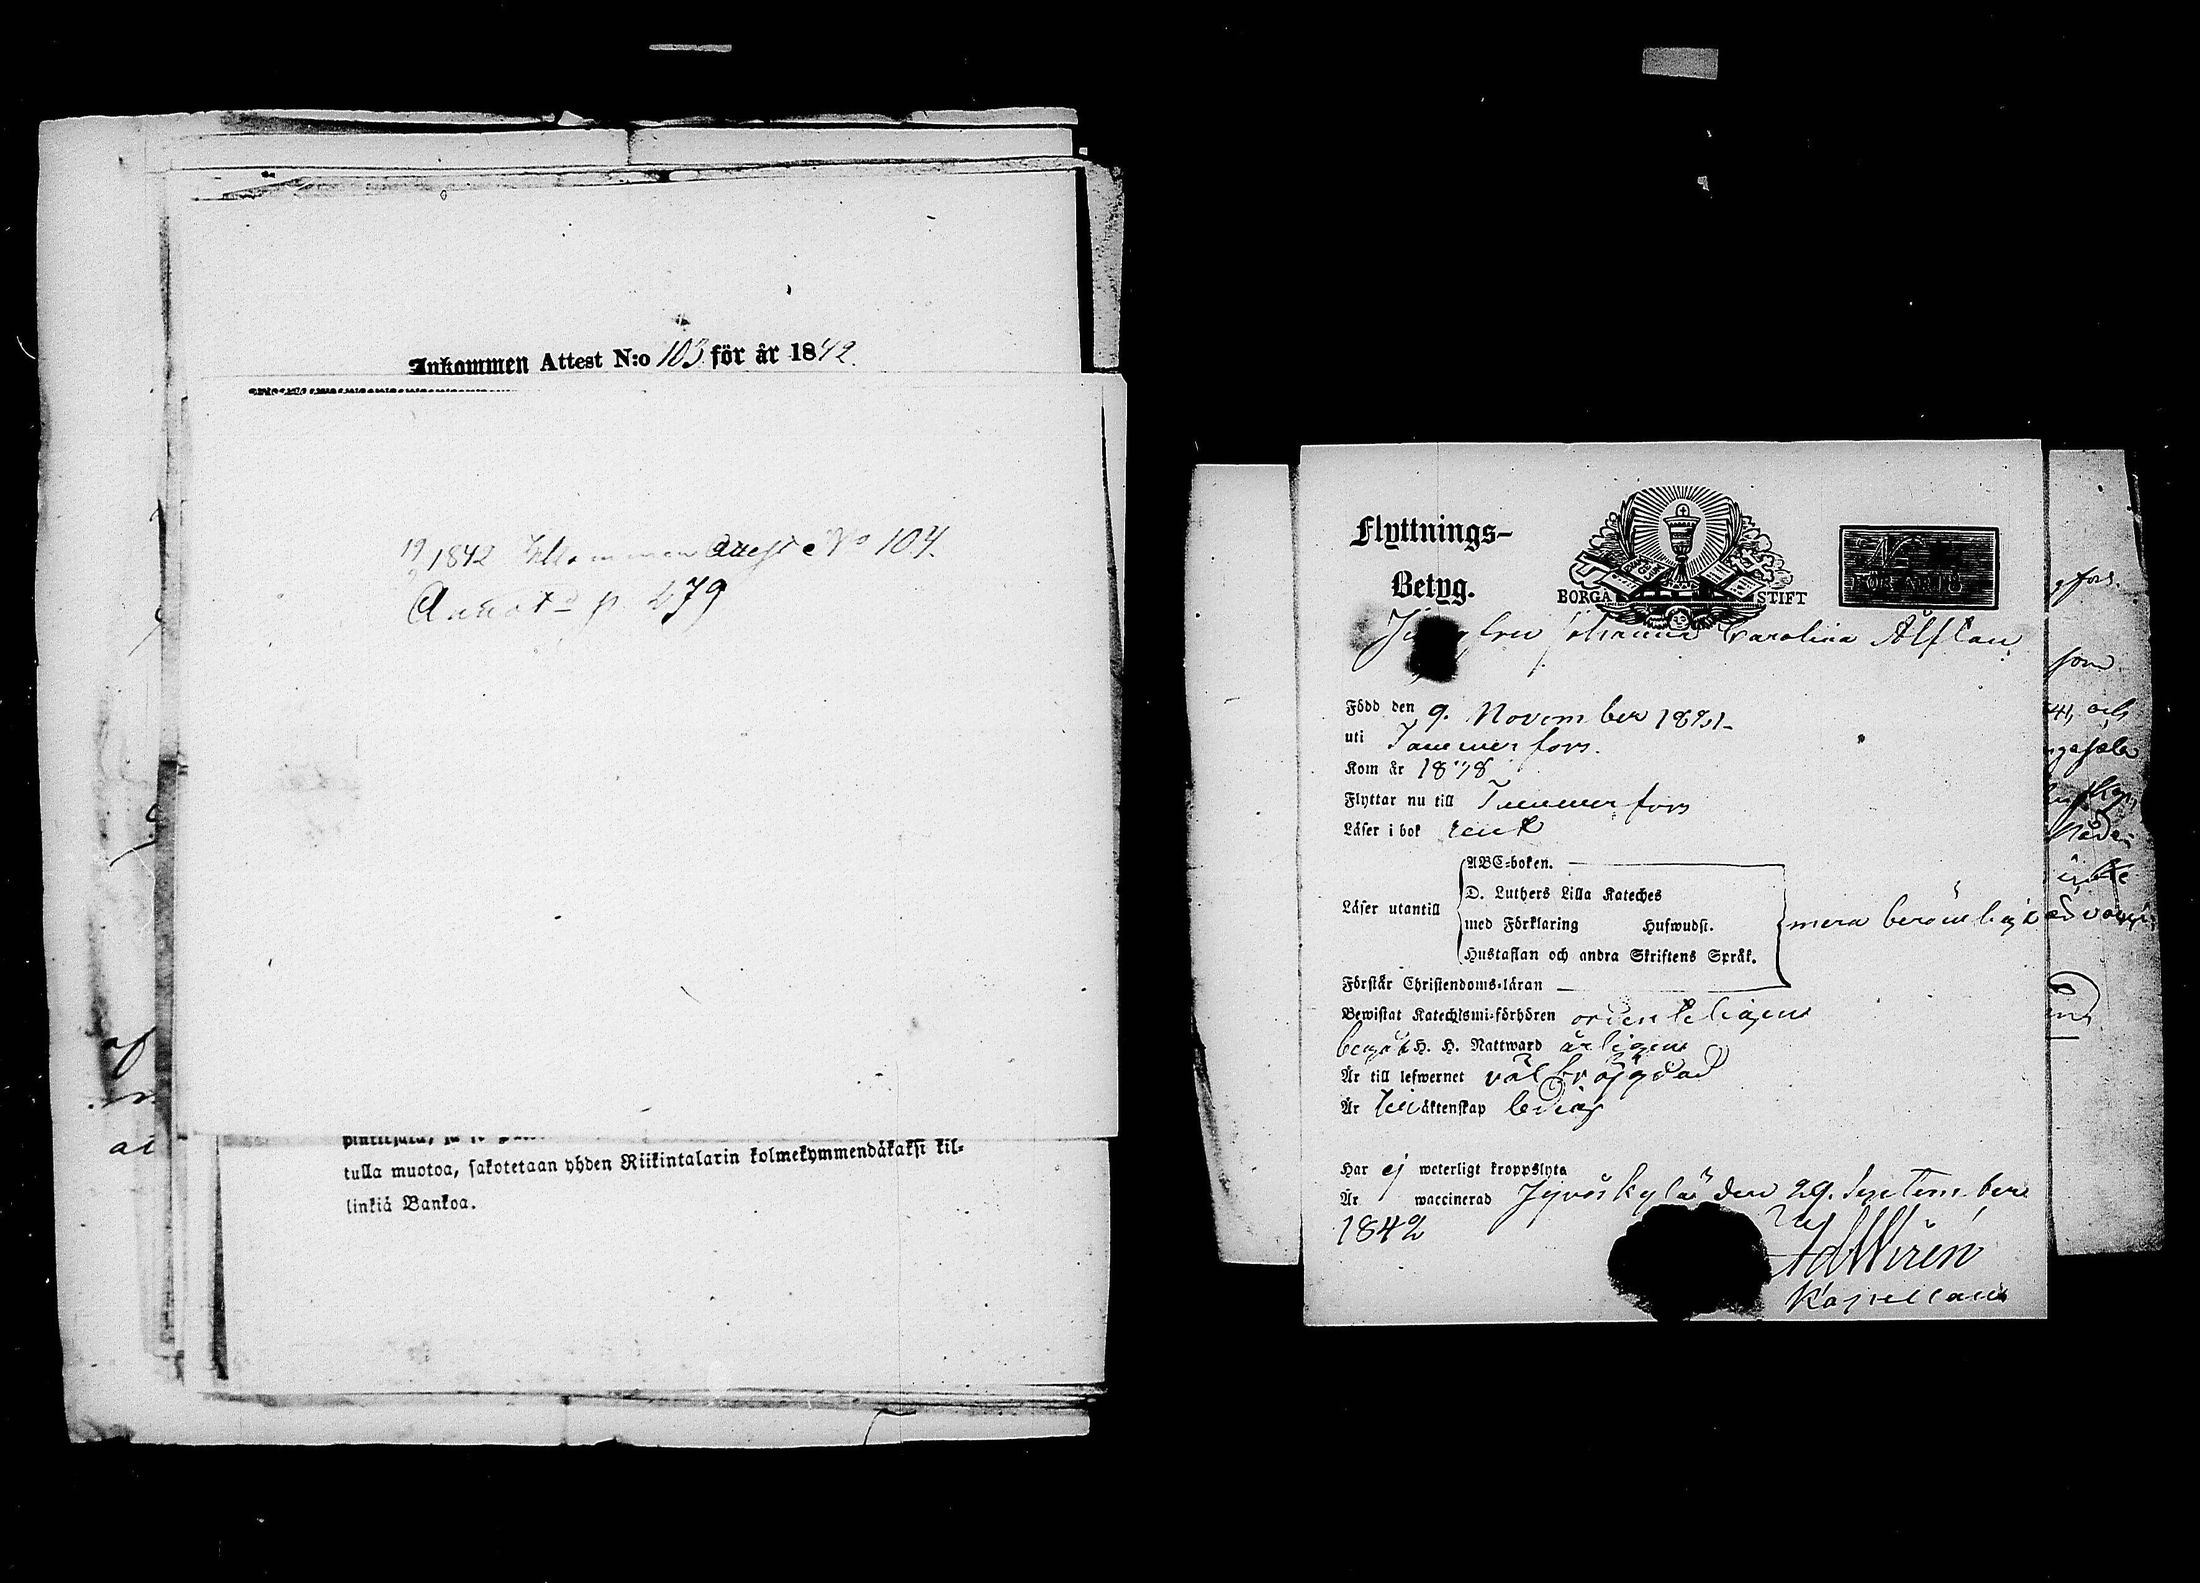 Inkommen Attest N:o 103 för år 1842.
19/9 1842 Inkommen Attest No 104.
Annot p. 279
tulla muotoa, sakotetaan yhden Riikintalarin kolmekymmendäkaksi kil-
linkiä Bankoa.
Flyttnings-
Betyg.
BORGÅ STIFT
N
FÖR ÅR 18
Johanna Carolina Alftan
Född den 9. November 1821
uti Tammerfors.
Kom år 1838
Flyttar nu till Tammerfors
Läser i bok rent
ABC-boken.
D. Luthers Lilla Kateches
Läser utantill
med Förklaring Hufwudst.
Hustaflan och andra Skriftens Språk.
mera berömligt
Förstår Christendoms-läran
Bewistat Katechismi-förhören ordenteligen
begåt H. H. Nattward årligen
Är till lefwernet väl frägdad
Är till äktenskap ledig
Har ej weterligt kroppslyte
Är waccinerad Jyväskylä den 29. September
1842
Ad Wirén
Kapellan
gfors.
som
41, och